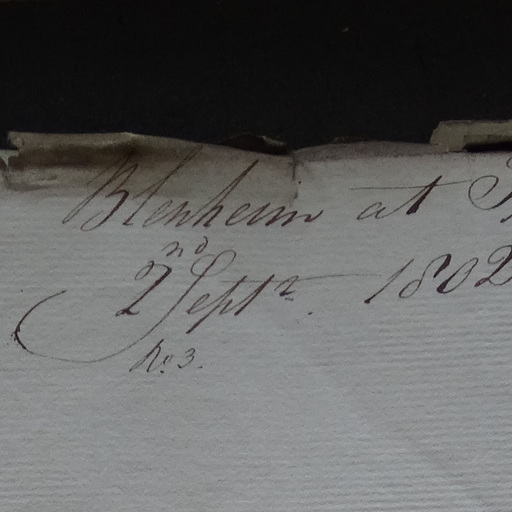 Blenheim at
2nd Septr. 1802
No. 3.